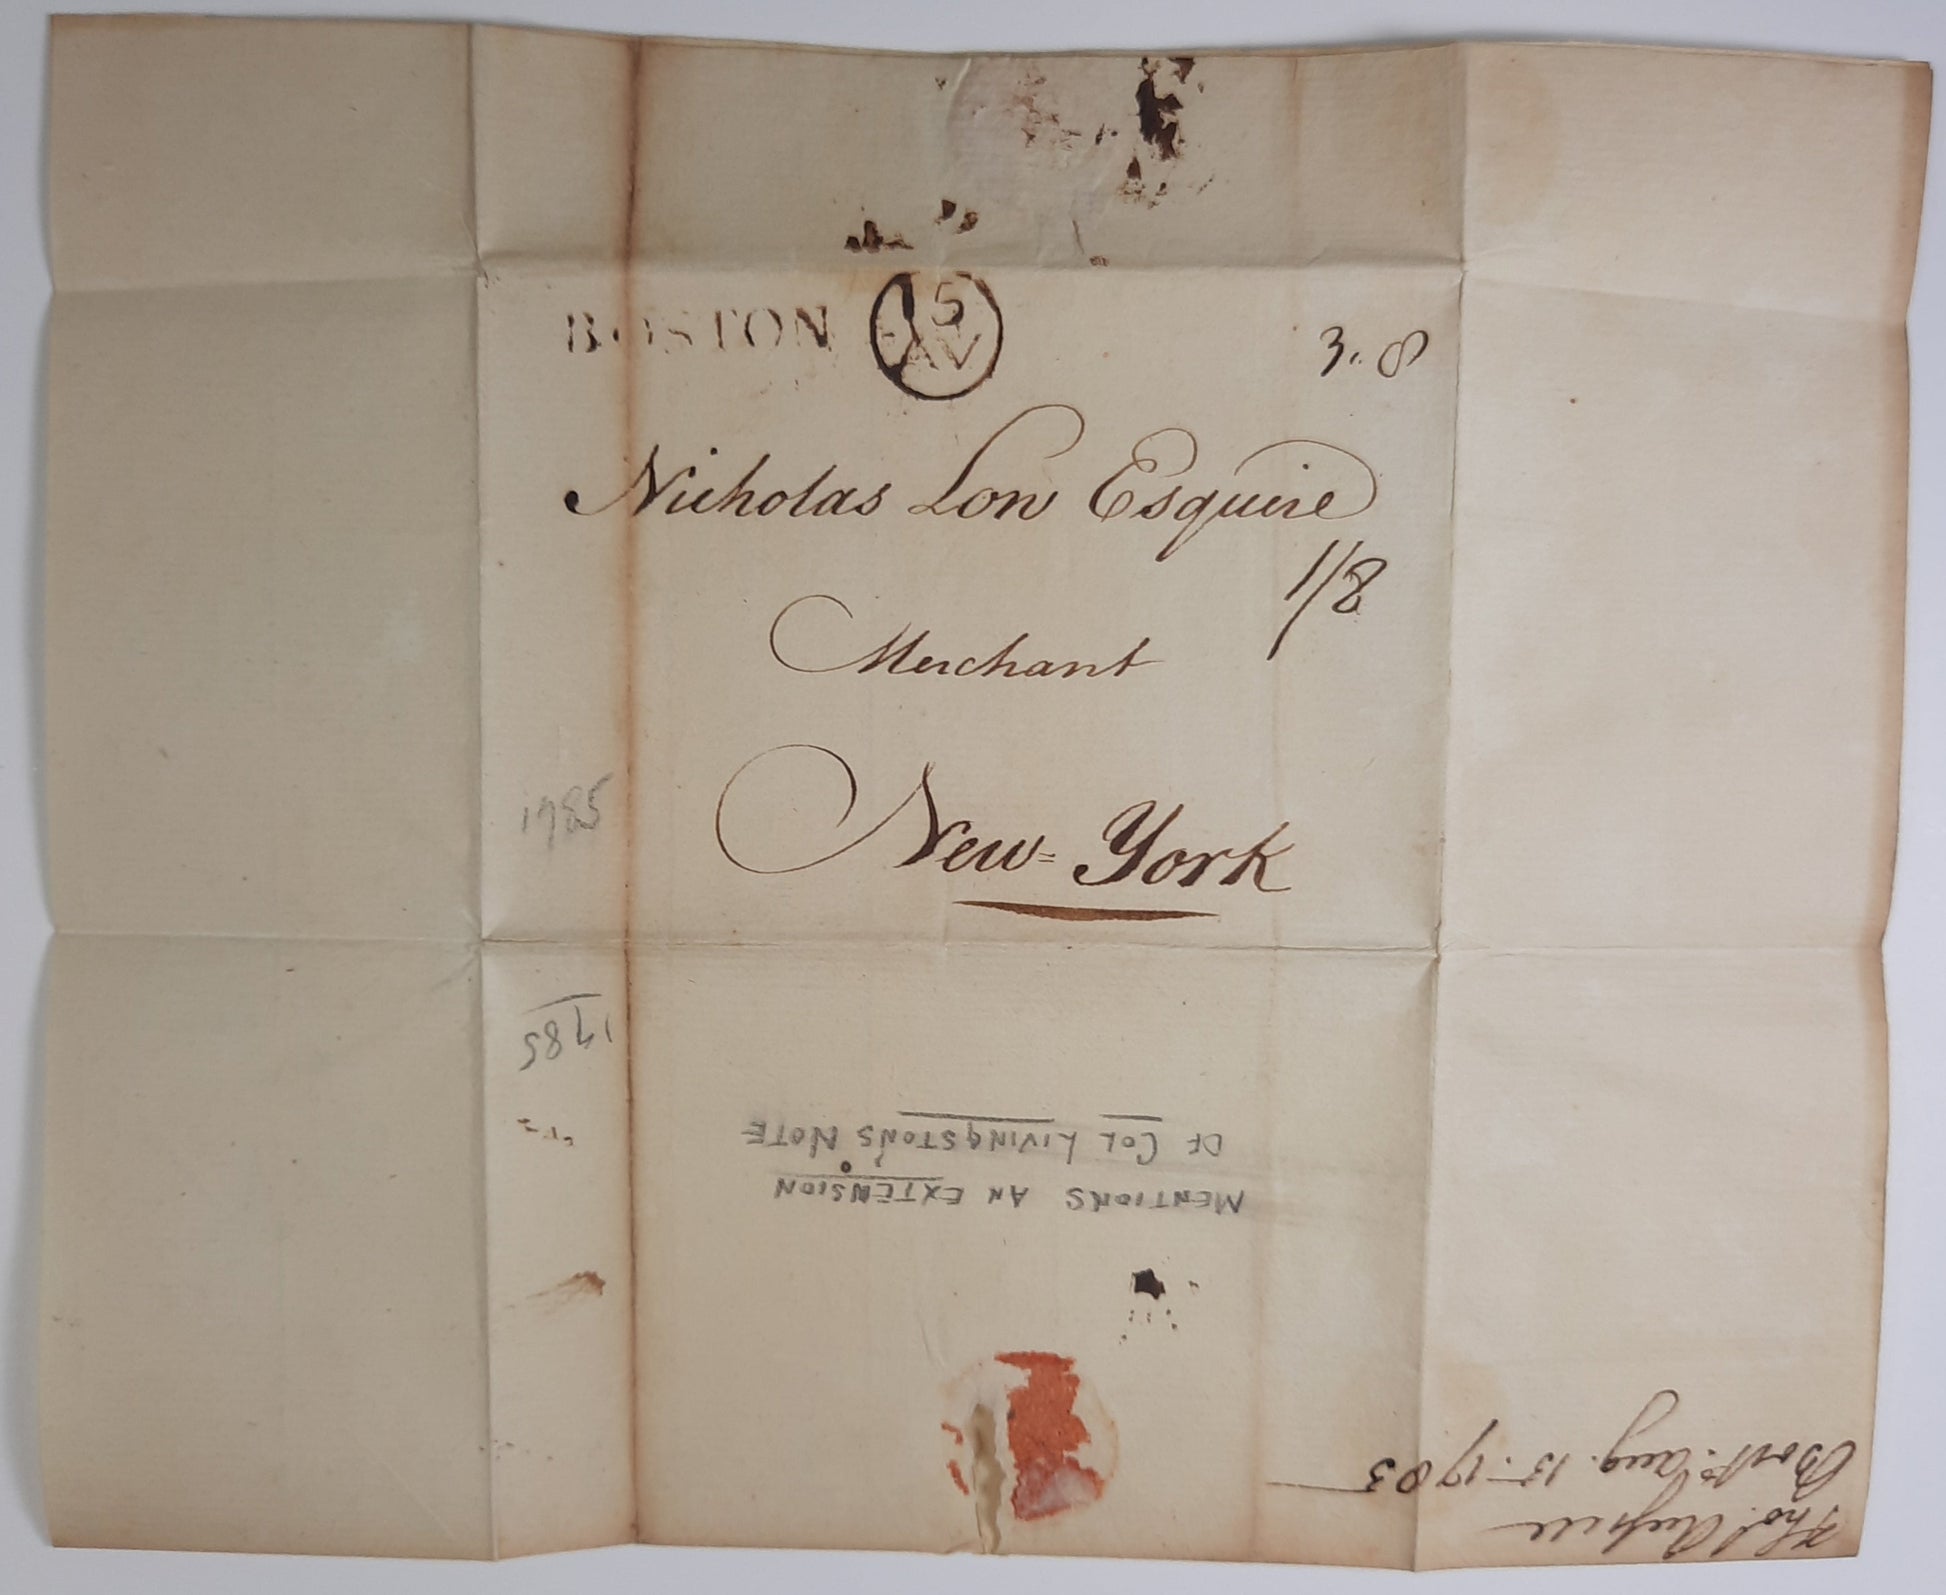 BOSTON
15
AV
3.. 8
Nicholas Low Esquire
1/8
Merchant
New=York
1785
1785
MENTIONS AN EXTENSION
OF COL LIVINGSTON'S NOTE
Thos.
Bostn. Aug. 15. 1785